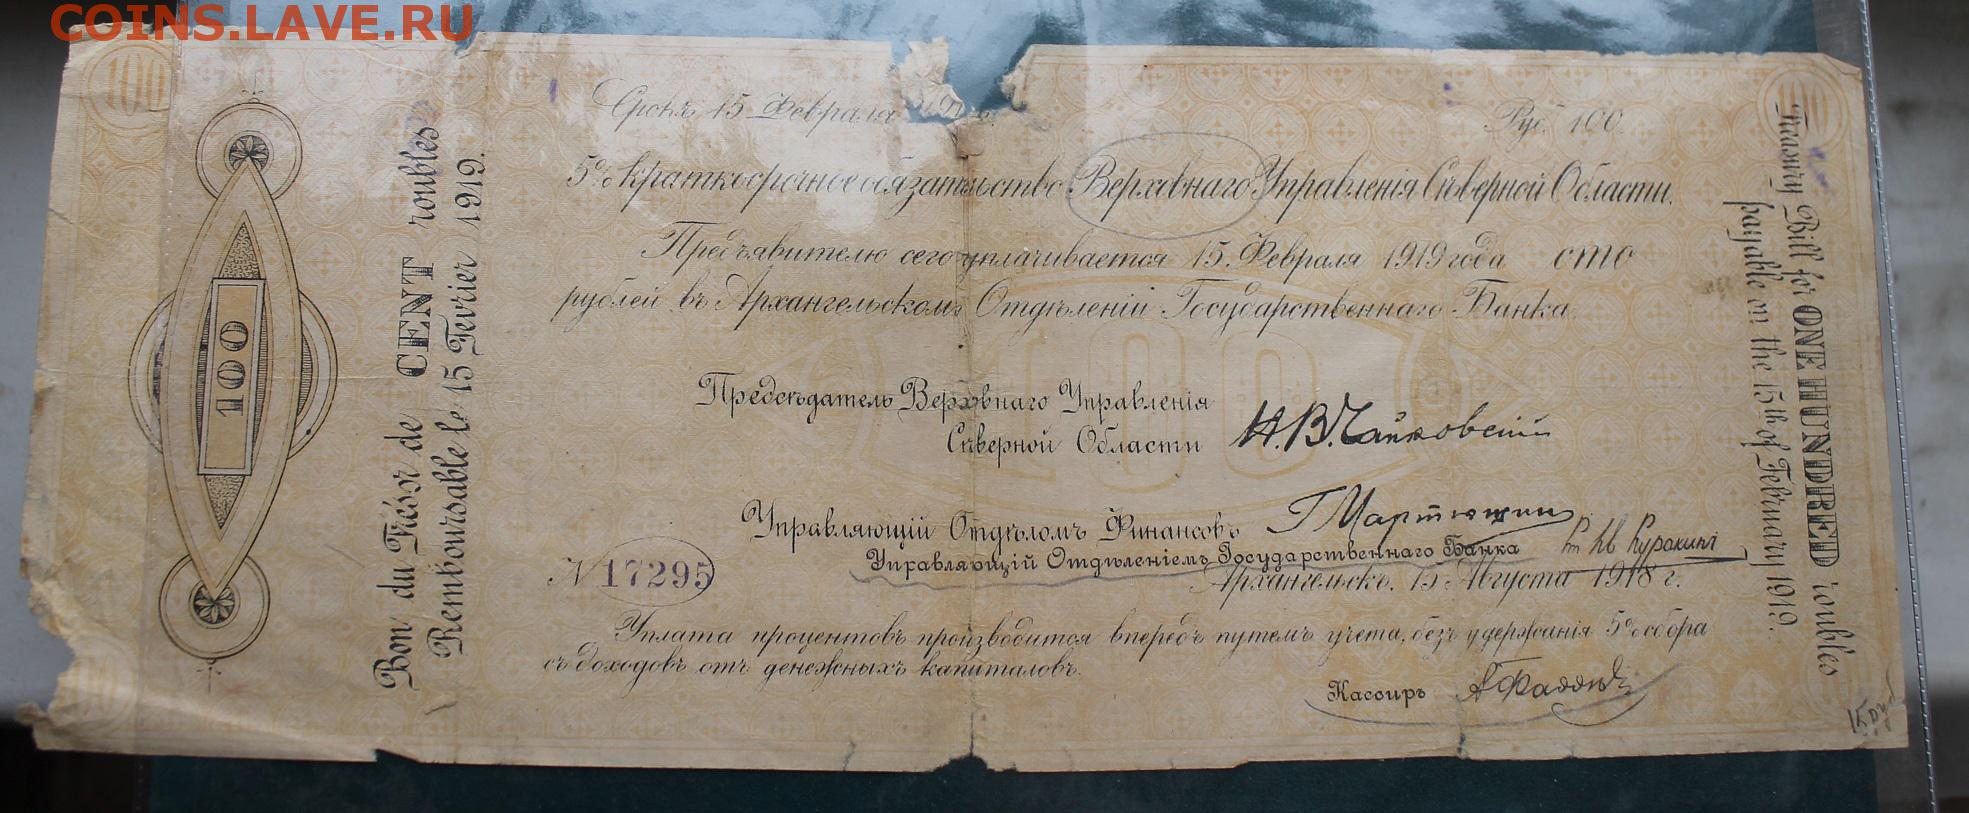 COINS.LAVE.RU
100
100
Срокъ 15 Февраля
Руб. 100.
5% краткосрочное обязательство Верховнаго Управленія Сѣверной Области.
Предъявителю сего уплачивается 15 Февраля 1919 года сто
рублей въ Архангельскомъ Отдѣленіи Государственнаго Банка.
100
Предсѣдатель Верховнаго Управленія
Сѣверной Области Н.В.Чайковскій
Управляющій Отдѣломъ Финансовъ
Управляющій Отдѣленіемъ Государственнаго Банка Куракинъ
№ 17295
Архангельскъ. 15 Августа 1918 г.
Уплата процентовъ производится впередъ путемъ учета, безъ удержанія 5% сбора
съ доходовъ отъ денежныхъ капиталовъ.
Кассиръ
100
Bon du Trésor de CENT roubles
Remboursable le 15 Fevrier 1919.
Treasury Bill for ONE HUNDRED roubles
payable on the 15th of February 1919.
15 руб